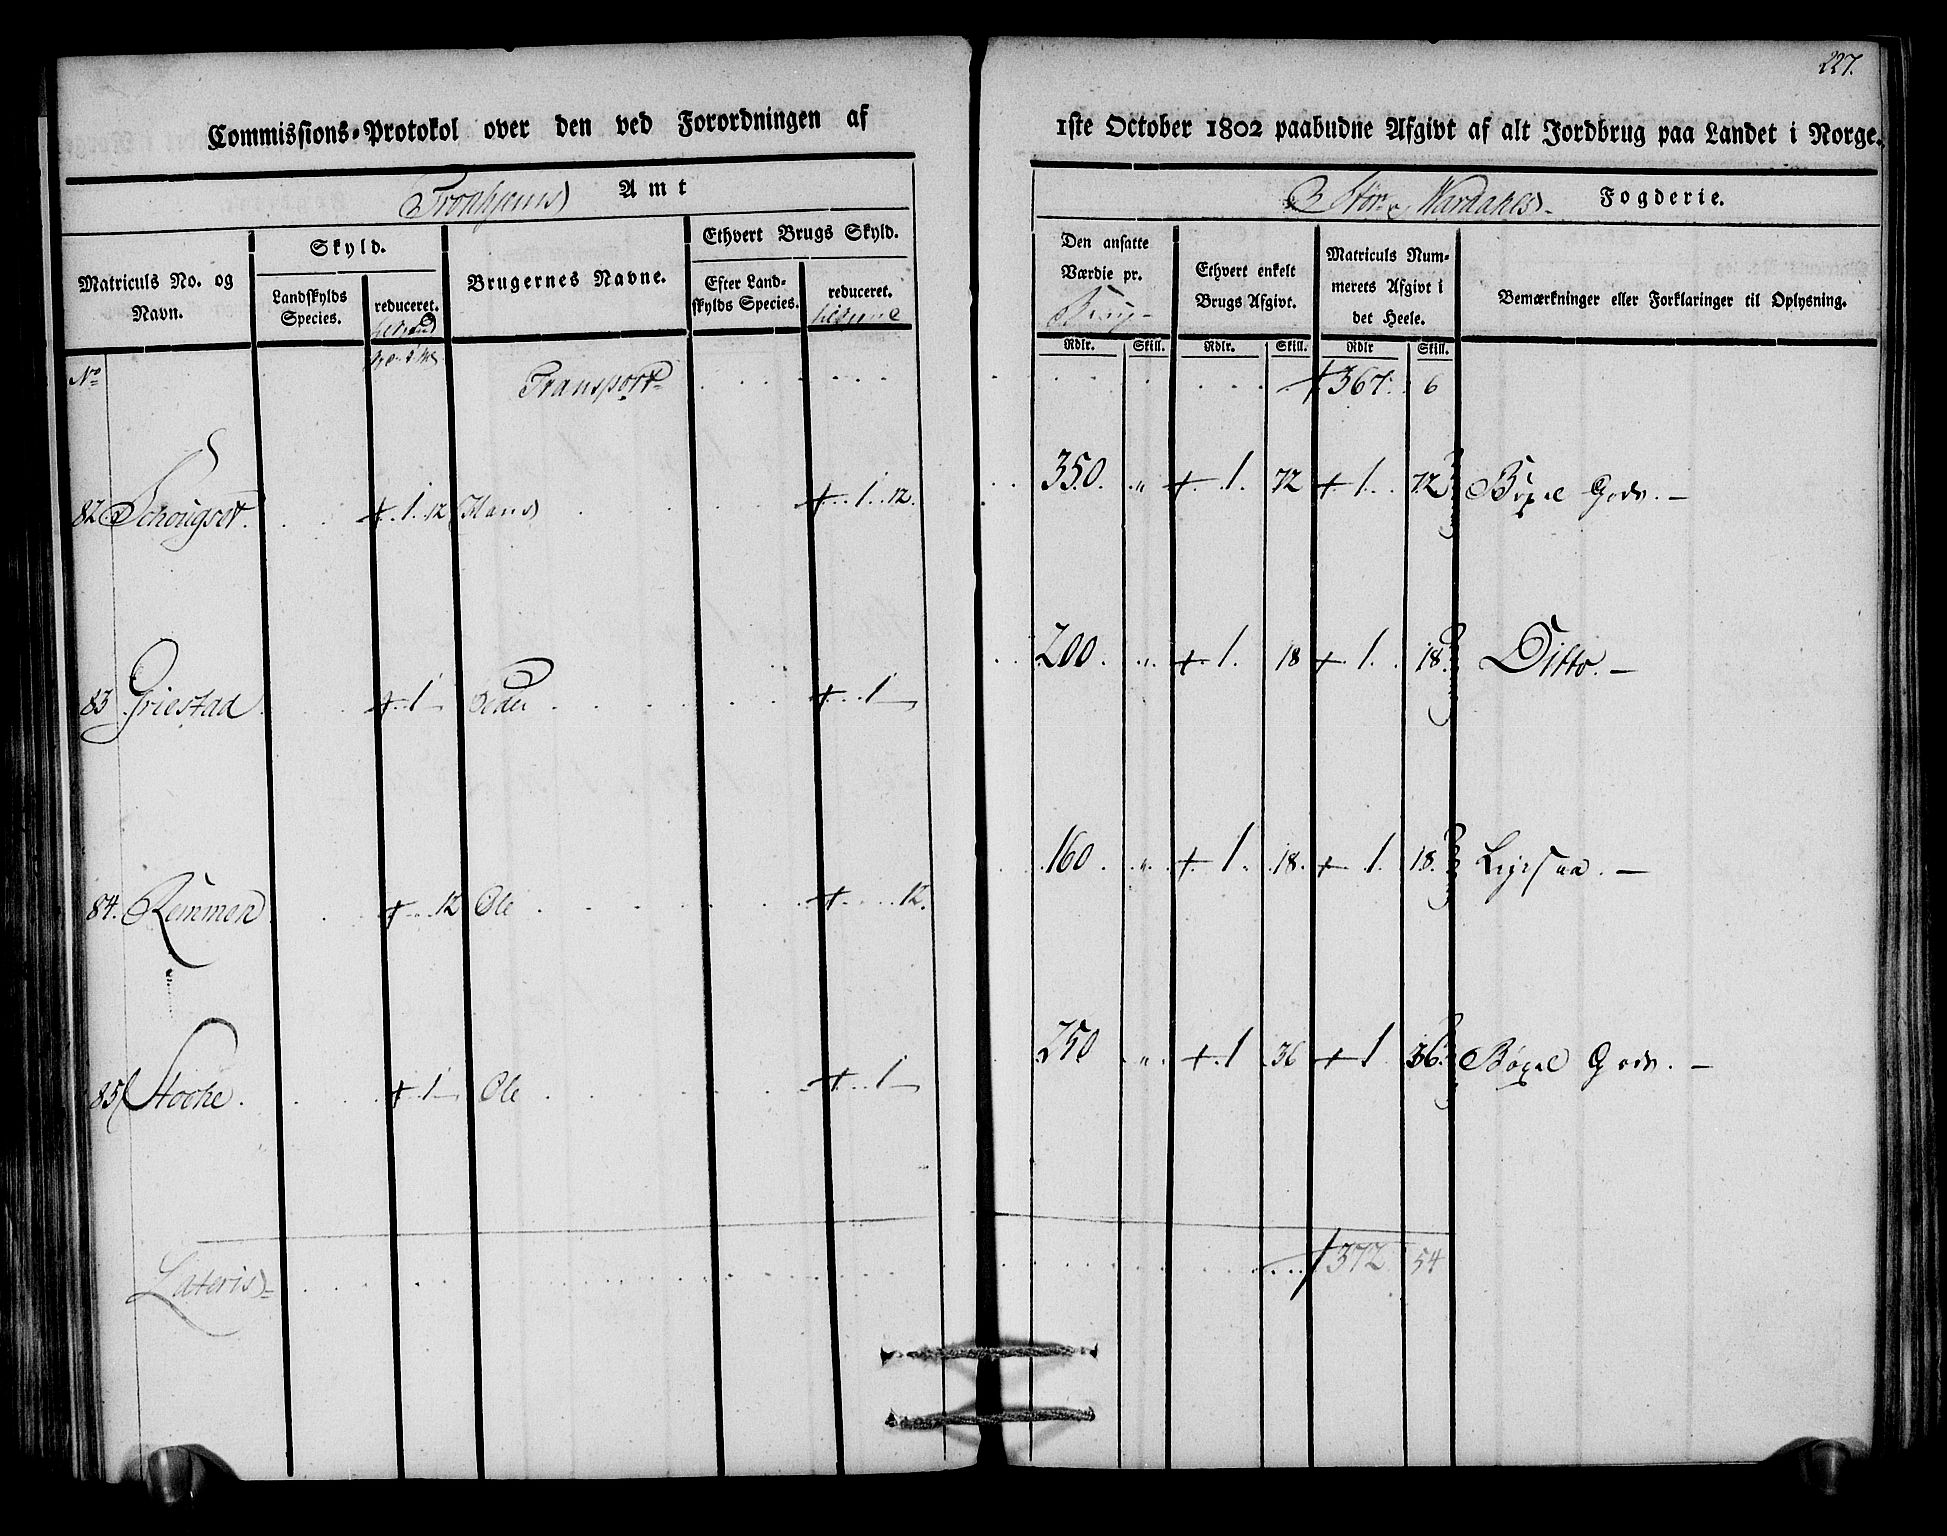 227.
Commissions-Protokol over den ved Forordningen af 1ste October 1802 paabudne Afgivt af alt Jordbrug paa Landet i Norge.
Tronhjems Amt
Stør & Værdahls Fogderie.
Matriculs No. og Navn.
Skyld.
Landskylds Species.
reduceret.
Brugernes Navne.
Ethvert Brugs Skyld.
Efter Landskylds Species.
reduceret.
Den ansatte Værdie pr. Brug
Ethvert enkelt Brugs Afgivt.
Matriculs Nummerets Afgivt i det Heele.
Bemærkninger eller Forklaringer til Oplysning.
Rdlr. Skill. Rdlr. Skill. Rdlr Skill.
No Transport 367. 6
82 1. 12 Hans 1. 12. 350. " 1. 72 1. 72 Gods. —
83 Griestad 1 — Peder 1 — 200. " 1. 18 1. 18. Ditto. —
84. Remmen 12 Ole 12. 160. " 1. 18. 1. 18. Ligesaa. —
85 Stoche 1 — Ole 1 — 250 " 1 36 1 36. Gods. —
Lateris 372 54